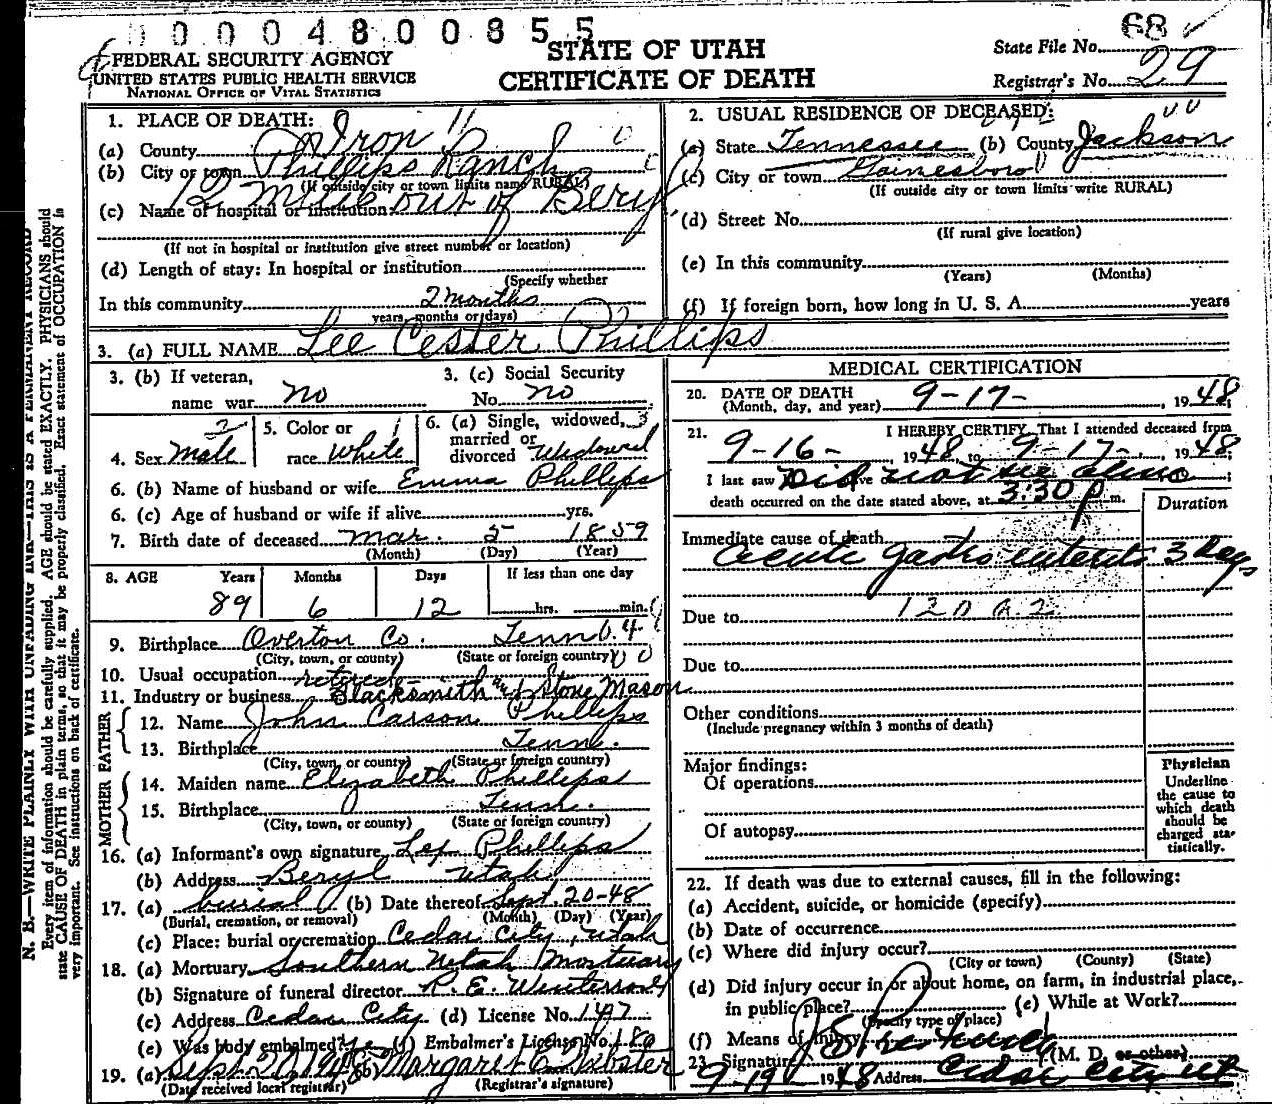 0 0 0 0 4 8 0 0 8 5 5
68
STATE OF UTAH
CERTIFICATE OF DEATH
FEDERAL SECURITY AGENCY
UNITED STATES PUBLIC HEALTH SERVICE
NATIONAL OFFICE OF VITAL STATISTICS
State File No.
Registrar's No. 29
N. B.—WRITE PLAINLY WITH UNFADING INK—THIS IS A PERMANENT RECORD
Every item of information should be carefully supplied. AGE should be stated EXACTLY. PHYSICIANS should
state CAUSE OF DEATH in plain terms, so that it may be properly classified. Exact statement of OCCUPATION is
very important. See instructions on back of certificate.
1. PLACE OF DEATH:
(a) County Iron
(b) City or town Phillips Ranch
(If outside city or town limits name RURAL)
12 Mile out of Beryl
(c) Name of hospital or institution
(If not in hospital or institution give street number or location)
(d) Length of stay: In hospital or institution
(Specify whether
In this community 2 months
years, months or days)
2. USUAL RESIDENCE OF DECEASED:
(a) State Tennessee (b) County Jackson
(c) City or town Gainesboro
(If outside city or town limits write RURAL)
(d) Street No.
(If rural give location)
(e) In this community
(Years) (Months)
(f) If foreign born, how long in U. S. A. years
3. (a) FULL NAME Lee Cester Phillips
3. (b) If veteran,
name war no
3. (c) Social Security
No. no
4. Sex Male
5. Color or
race White
6. (a) Single, widowed, 3
married or
divorced Widowed
6. (b) Name of husband or wife Emma Phillips
6. (c) Age of husband or wife if alive yrs.
7. Birth date of deceased Mar. 5 1859
(Month) (Day) (Year)
8. AGE Years Months Days If less than one day
89 6 12 hrs. min.
9. Birthplace Overton Co. Tenn
(City, town, or county) (State or foreign country)
10. Usual occupation retired
11. Industry or business Blacksmith and Stone Mason
FATHER
12. Name John Carson Phillips
13. Birthplace Tenn.
(City, town, or county) (State or foreign country)
MOTHER
14. Maiden name Elizabeth Phillips
15. Birthplace Tenn.
(City, town, or county) (State or foreign country)
16. (a) Informant's own signature Phillips
(b) Address Beryl Utah
17. (a) burial (b) Date thereof Sept. 20-48
(Burial, cremation, or removal) (Month) (Day) (Year)
(c) Place: burial or cremation Cedar City, Utah
18. (a) Mortuary Southern Utah Mortuary
(b) Signature of funeral director R. E.
(c) Address Cedar City (d) License No. 147
(e) Was body embalmed? (f) Embalmer's License No. 180
19. (a) Sept 20 1948 (b) Margaret Webster
(Date received local registrar) (Registrar's signature)
MEDICAL CERTIFICATION
20. DATE OF DEATH
(Month, day, and year) 9-17- , 1948;
21. I HEREBY CERTIFY, That I attended deceased from
9-16- , 1948, to 9-17- , 1948;
I last saw Did not see alive
death occurred on the date stated above, at 3:30 p m.
Duration
Immediate cause of death
acute gastro enteritis 3 days
Due to
Due to
Other conditions
(Include pregnancy within 3 months of death)
Major findings:
Of operations
Of autopsy
Physician
Underline
the cause to
which death
should be
charged sta-
tistically.
22. If death was due to external causes, fill in the following:
(a) Accident, suicide, or homicide (specify)
(b) Date of occurrence
(c) Where did injury occur?
(City or town) (County) (State)
(d) Did injury occur in or about home, on farm, in industrial place,
in public place? (e) While at Work?
(Specify type of place)
(f) Means of injury
23. Signature (M. D. or other)
9-19 1948 Address Cedar City Ut